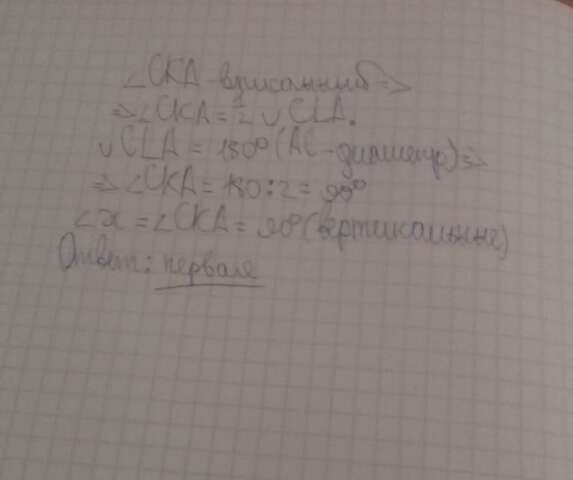 ∠CKA - вписанный =>
=> ∠CKA = 1/2 ∪ CLA.
∪ CLA = 180° (AC - диаметр) =>
=> ∠CKA = 180 : 2 = 90°
∠x = ∠CKA = 90° (вертикальные)
Ответ: первая